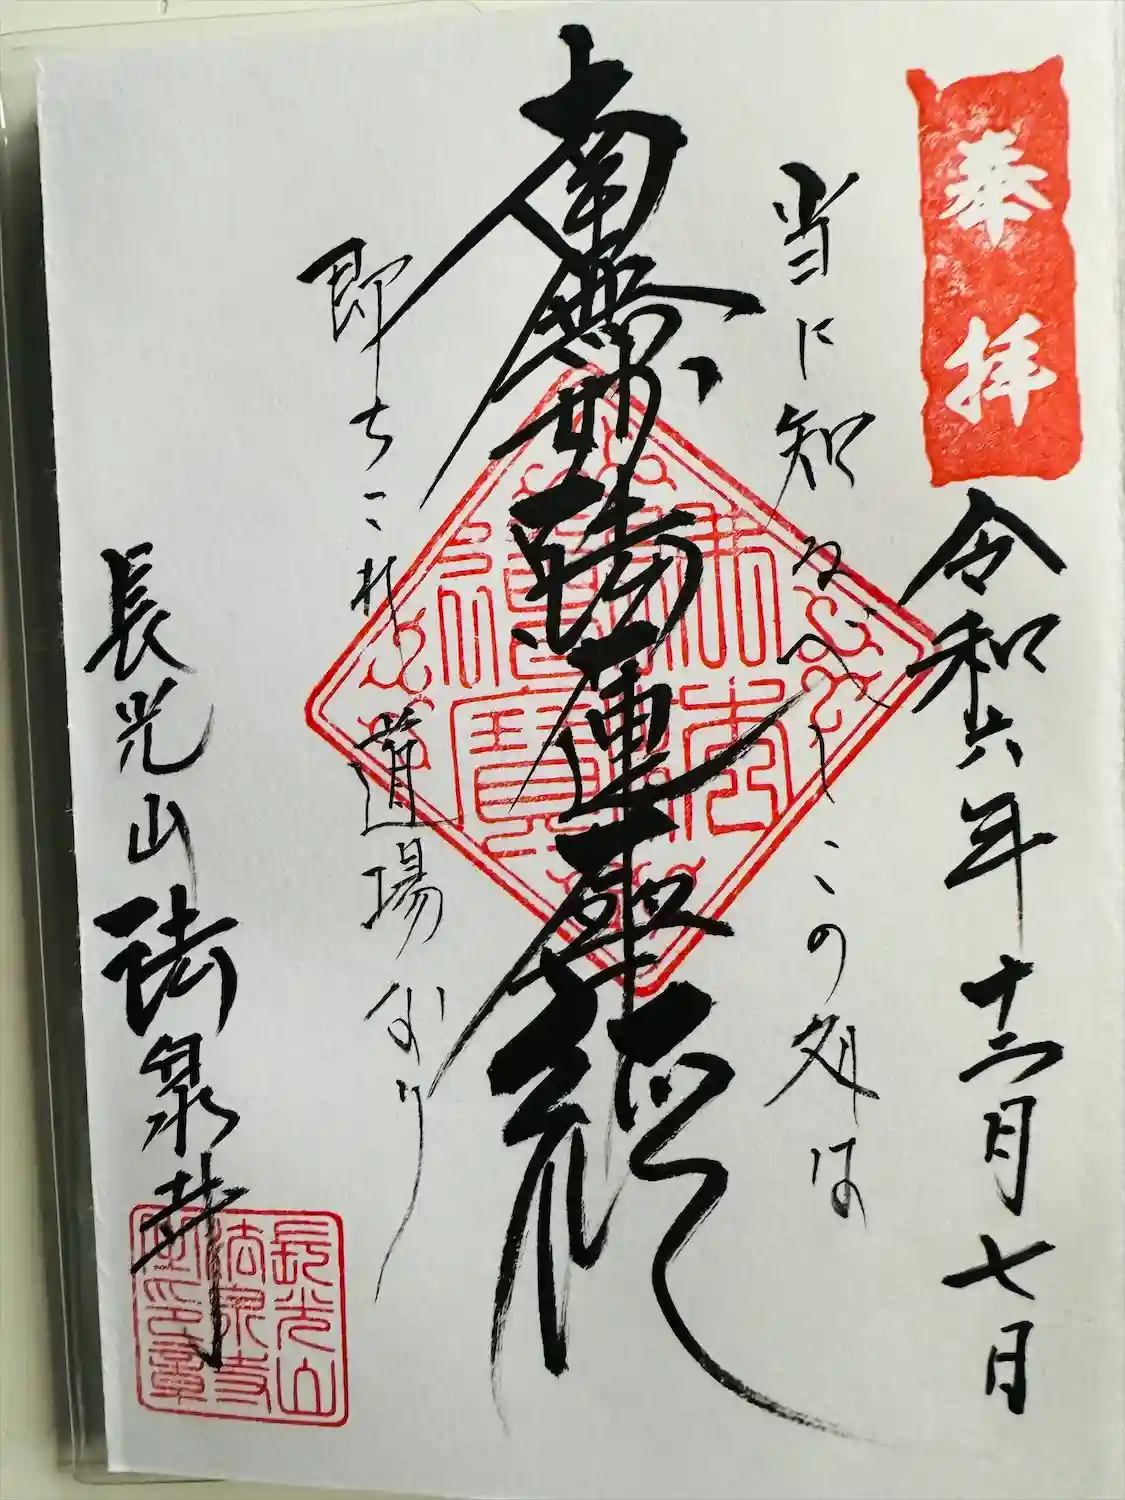 奉拝
令和六年十二月七日
当に知るべしこの処は
南無妙法蓮華経
即ちこれ道場なり
長光山法泉寺
長光山
法泉寺